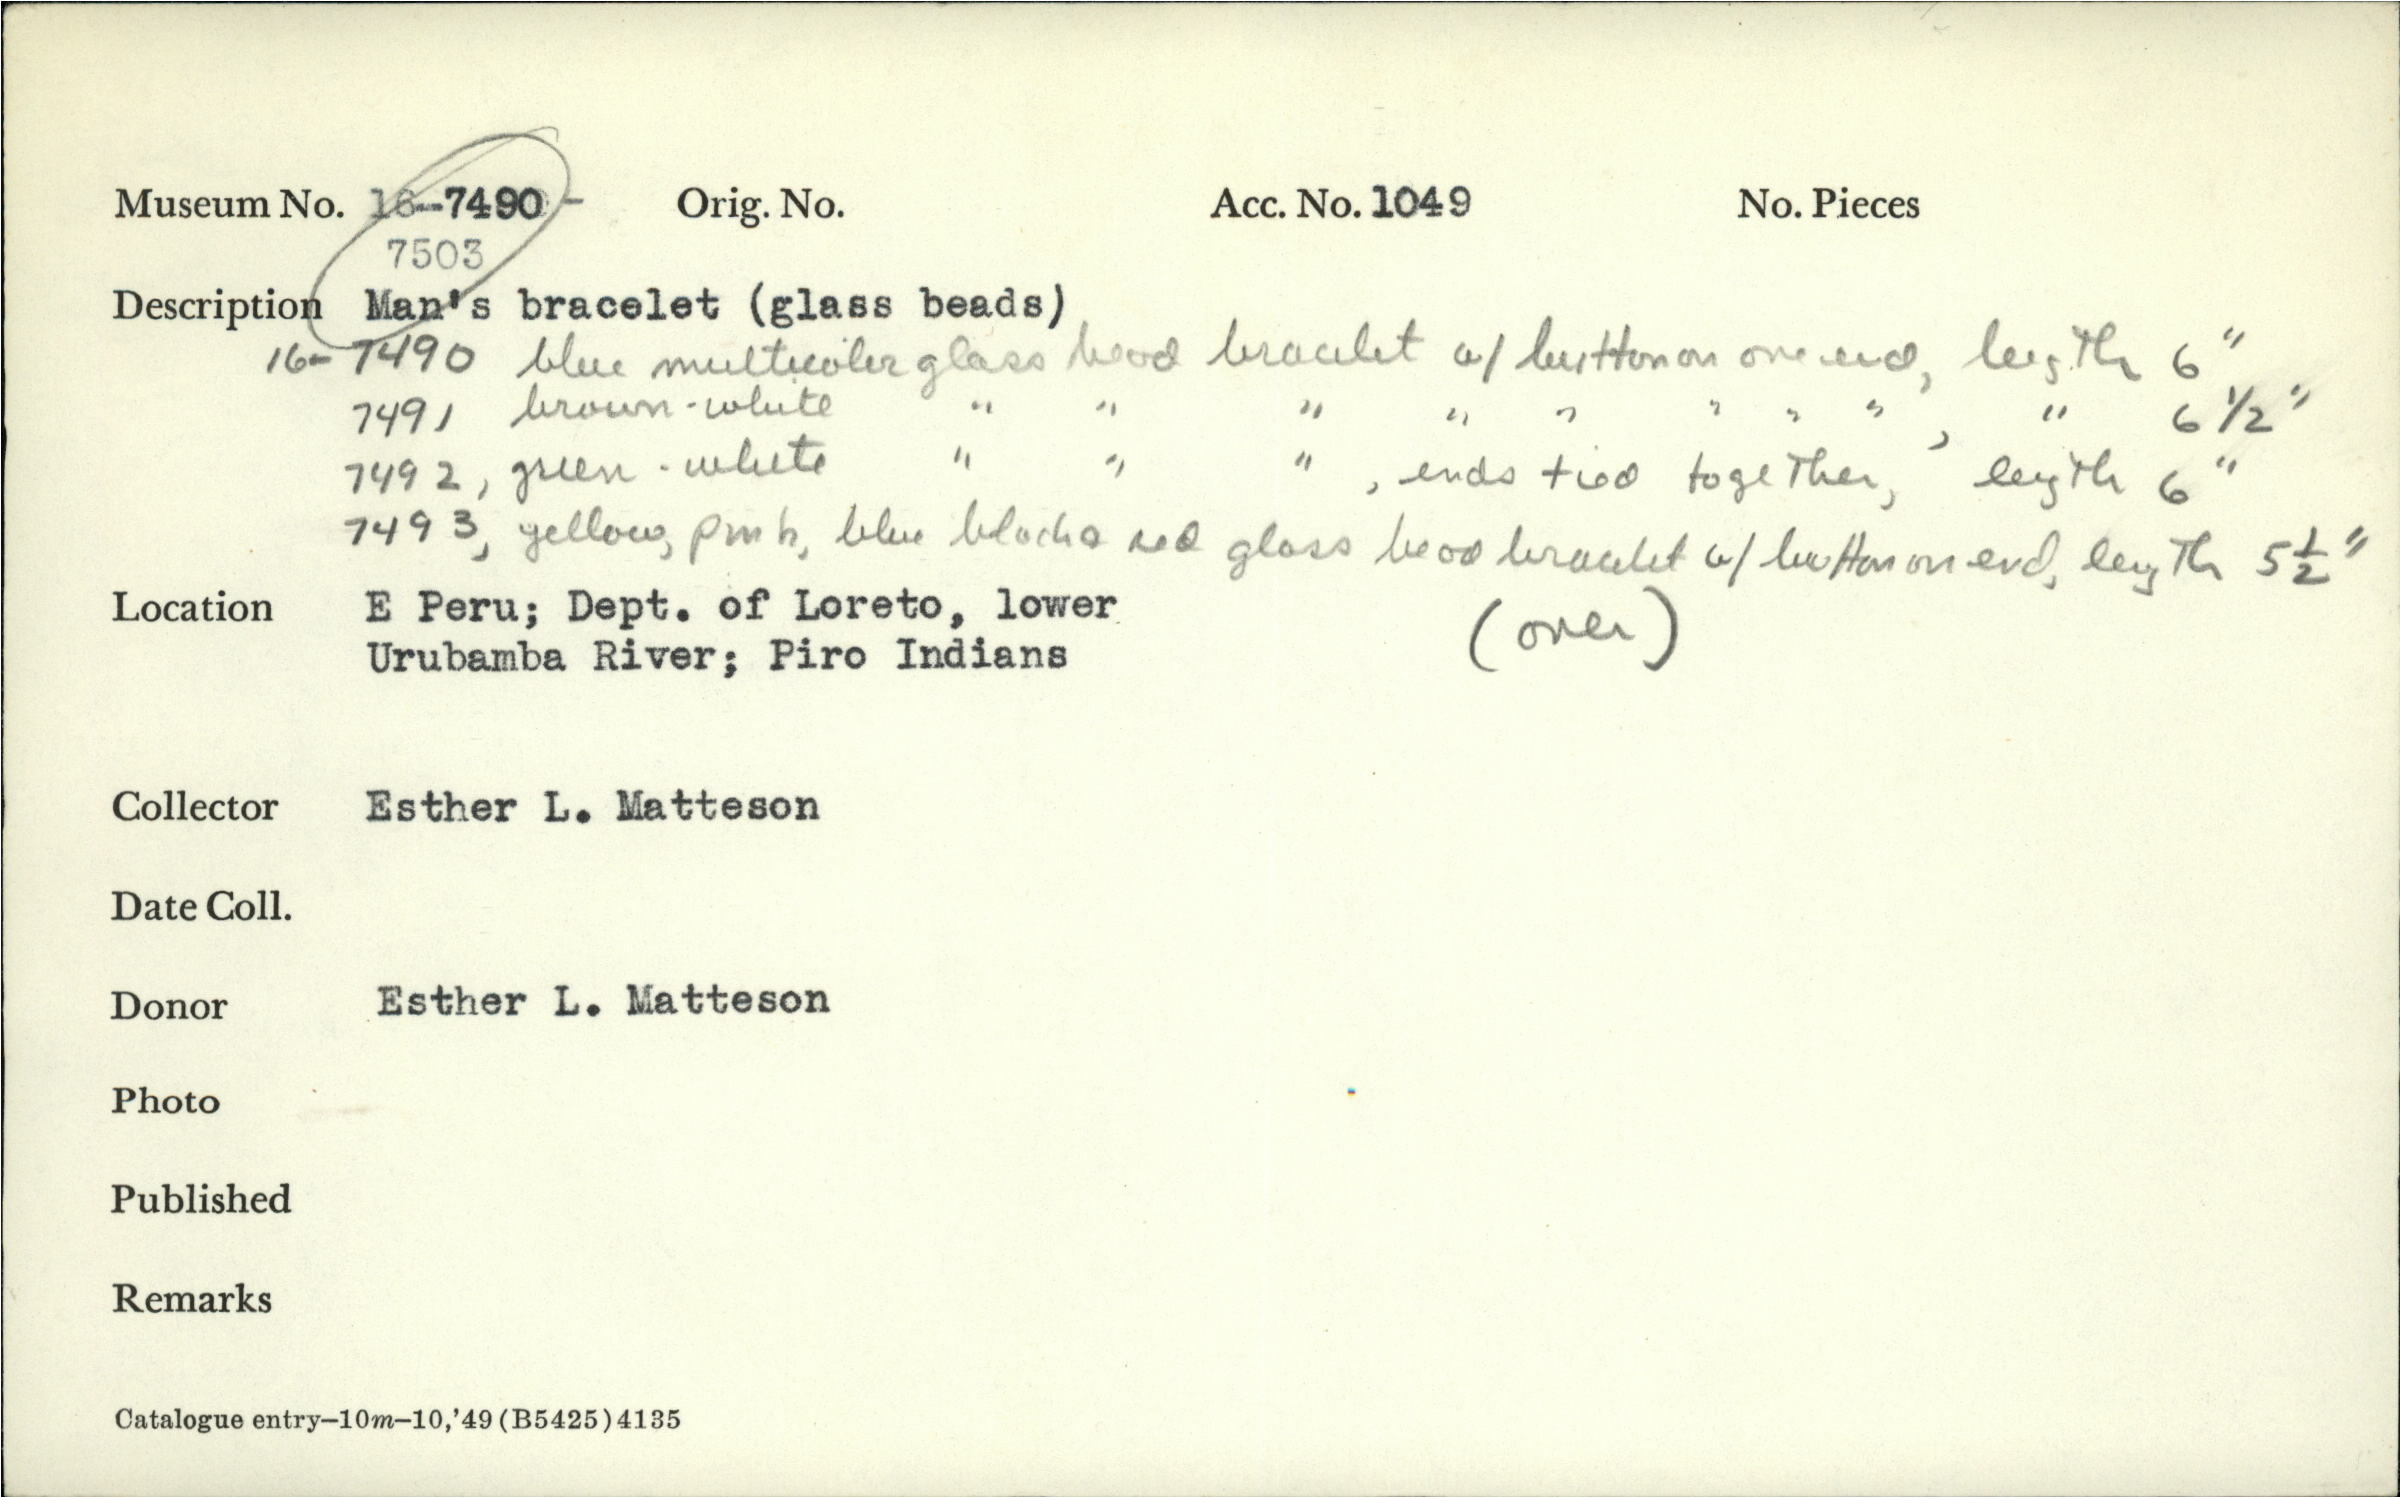 Museum No. 16-7490- Orig. No. Acc. No. 1049 No. Pieces
7503
Description Man's bracelet (glass beads)
16-7490 blue multicolor glass bead bracelet w/ button on one end, length 6"
7491 brown-white " " " " " " " " , " 6 1/2"
7492, green-white " " " , ends tied together, length 6"
7493, yellow, pink, blue black & red glass bead bracelet w/ button on end, length 5 1/2"
(over)
Location E Peru; Dept. of Loreto, lower
Urubamba River; Piro Indians
Collector Esther L. Matteson
Date Coll.
Donor Esther L. Matteson
Photo
Published
Remarks
Catalogue entry—10m—10,'49 (B5425) 4135